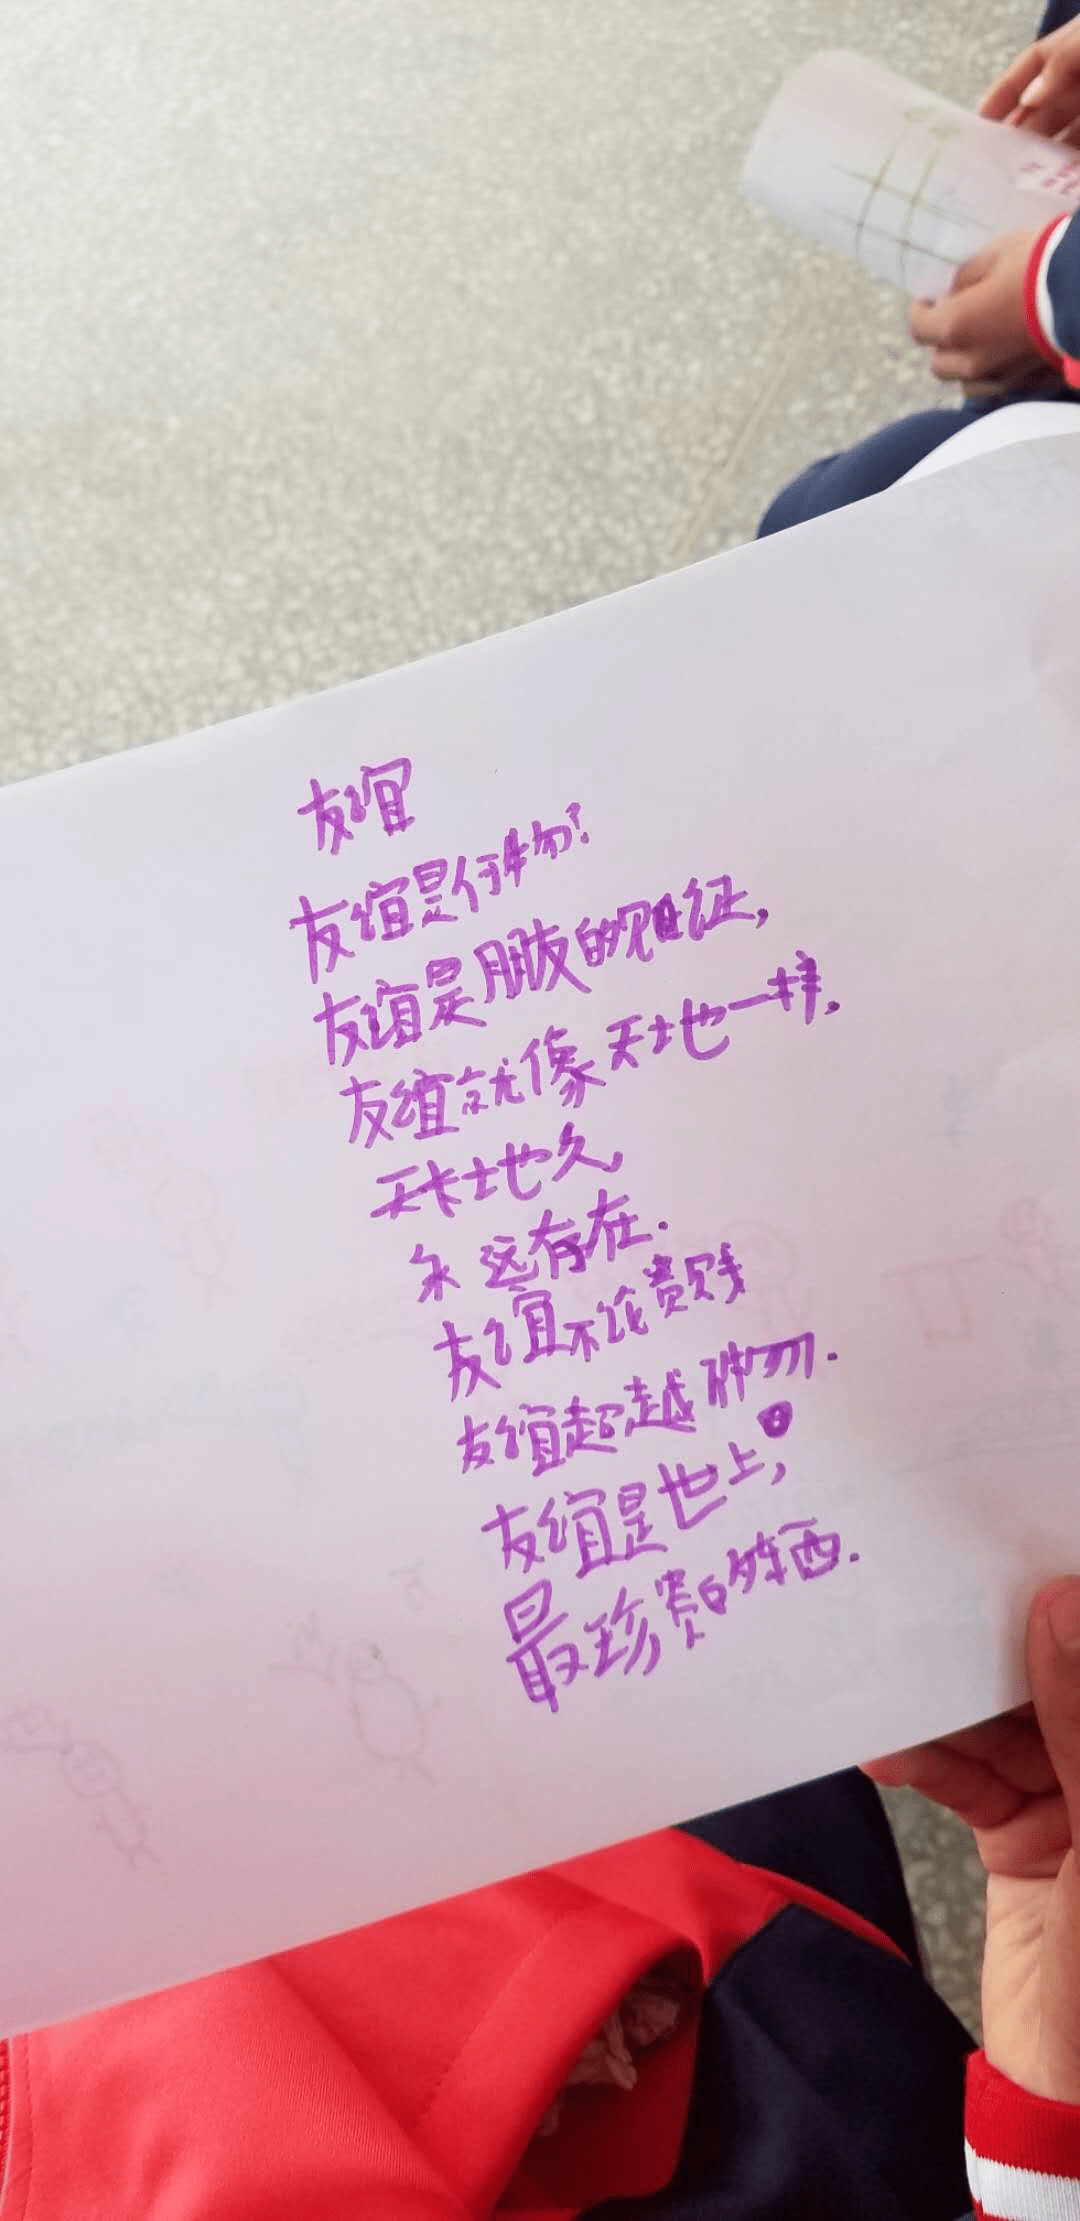 友谊
友谊是何物?
友谊是朋友的见证,
友谊就像天地一样,
天长地久,
永远存在.
友谊不论贵贱
友谊超越物.
友谊是世上,
最珍贵的东西.